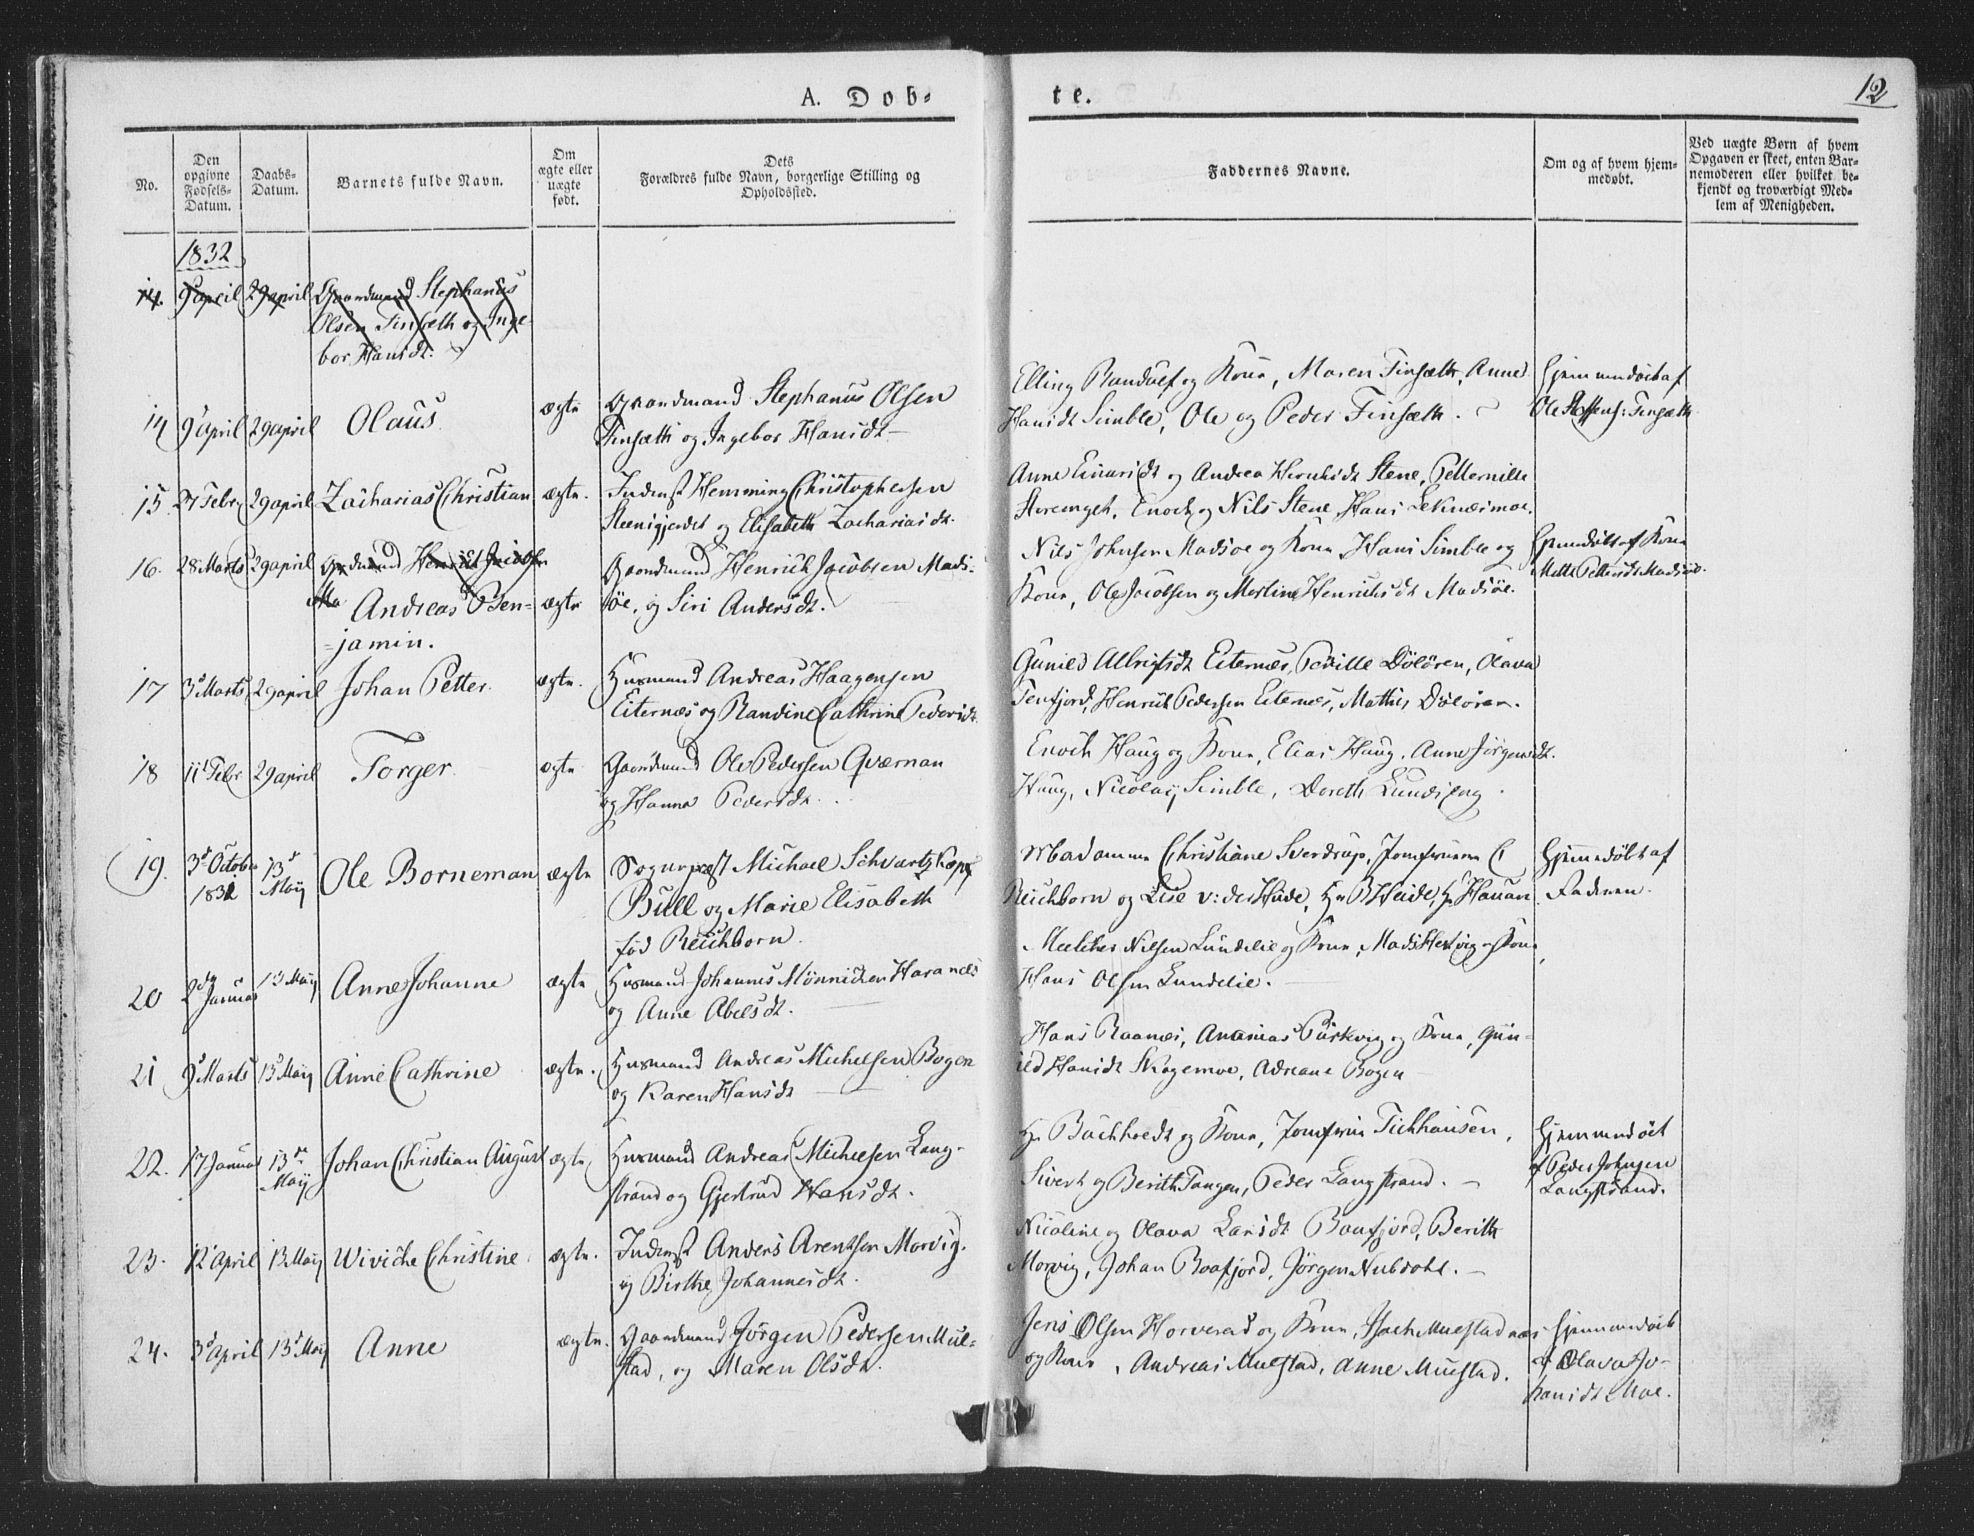 A. Dob-
te.
12
No.
Den opgivne Fødsels-Datum.
Daabs-Datum.
Barnets fulde Navn.
Om ægte eller uægte født.
Dets Forældres fulde Navn, borgerlige Stilling og Opholdssted.
Faddernes Navne.
Om og af hvem hjem-medøbt.
Ved uægte Børn af hvem
Opgaven er skeet, enten Bar-
nemoderen eller hvilket be-
kjendt og troværdigt Med-
lem af Menigheden.
1832
14. 9 april 29 april Gaardmand Stephanus
Olsen Finsæth og Inge-
bor Hansdt:
14 9 april 29 april Olaus. ægte Gaardmand Stephanus Olsen
Finsæth og Ingebor Hansdt
Elling Randulf og Kone, Maren Finsæth, Anne
Hansdt Simble, Ole og Peder Finsæth.
Hjemmedøbt af
Ole Steffens: Finsæth
15. 27 Febr 29 april Zacharias Christian ægte. Inderst Hemming Christophersen
Steensgjerdet og Elisabeth Zachariasdt.
Anne Einarsdt og Andrea Henriksdt Stene, Petternille
Enoch og Nils Stene, Hans Leknæsmoe.
16. 28 Marts 29 april Grdmand Henrik Jacobsen
Ma Andreas Ben-
=jamin.
ægte Gaardmand Henrich Jacobsen Mads-
øe, og Siri Andersdt.
Nils Johnsen Madsøe og Kone, Hans Simble og
Kone, Ole Jacobsen og Merline Henriksdt Madsøe.
Hjemdøbt af Kone
Mette Pettersdt Madsøe.
17 3 Marts 29 april Johan Petter. ægte. Husmand Andreas Haagensen
Eiternæs og Randine Cathrine Pedersdt.
Gunild Albrigtsdt Eiternæs, Pernille Döløren, Olava
Tenfjord, Henrik Pedersen Eiternæs, Mathis Døløren.
18 11 Febr 29 april Torger. ægte Gaardmand Ole Pedersen Qværnan
og Hanna Pedersdt.
Enoch Haug og Kone, Elias Haug, Anne Jørgensdt.
Haug, Nicolay Simble, Doreth Lundseng.
19. 3d October 1831 13d Maij Ole Borneman ægte Sognepræst Michael Schvartzkopf
Bull og Marie Elisabeth
fød Reichborn.
Madamme Christiane Sverdrup, Jomfruerne C
Reichborn og Lise v: der Hude, Hr B Heide, Hr Hauan
Hjemmedøbt af
Faderen.
20 2den Januar 13 Maij Anne Johanne ægte Husmand Johannes Mønnichen Haranæs
og Anne Abelsdt.
Melcher Nilsen Lundelie og Kone, Mads Hestvig og Kone
Hans Olsen Lundelie.
21 9 Marts 13 Maij Anne Cathrine ægte. Husmand Andreas Michelsen Bogen
og Karen Hansdt
Hans Raanæs, Ananias Purkvig og Kone, Gun-
ild Hansdt Skogemoe, Adriane Bogen
22. 17 Januar 13de Maij Johan Christian August ægte Husmand Andreas Michelsen Lang-
strand og Gjertrud Hansdt.
Hr Bachhoedt og Kone, Jomfrue Tichhausen,
Sivert og Berith Tangen, Peder Langstrand.
Hjemmedøbt
af Peder Johnsen
Langstrand.
23. 12 April 13 Maij Wiviche Christine ægte. Inderst Anders Arentsen Morvig.
og Birthe Johannesdt.
Nicoline og Olava Larsdt Baafjord, Berith
Morvig, Johan Baafjord, Jørgen Nubdahl.
24. 3d April 13d Maij Anne ægte. Gaardmand Jørgen Pedersen Mul-
stad, og Maren Olsdt.
Jens Olsen Horverud og Kone, Isach Mulstadnæs
og Kone, Andreas Mulstad, Anne Mulstad.
Hjemmedøbt
af Olava Jo-
hansdt Moe.